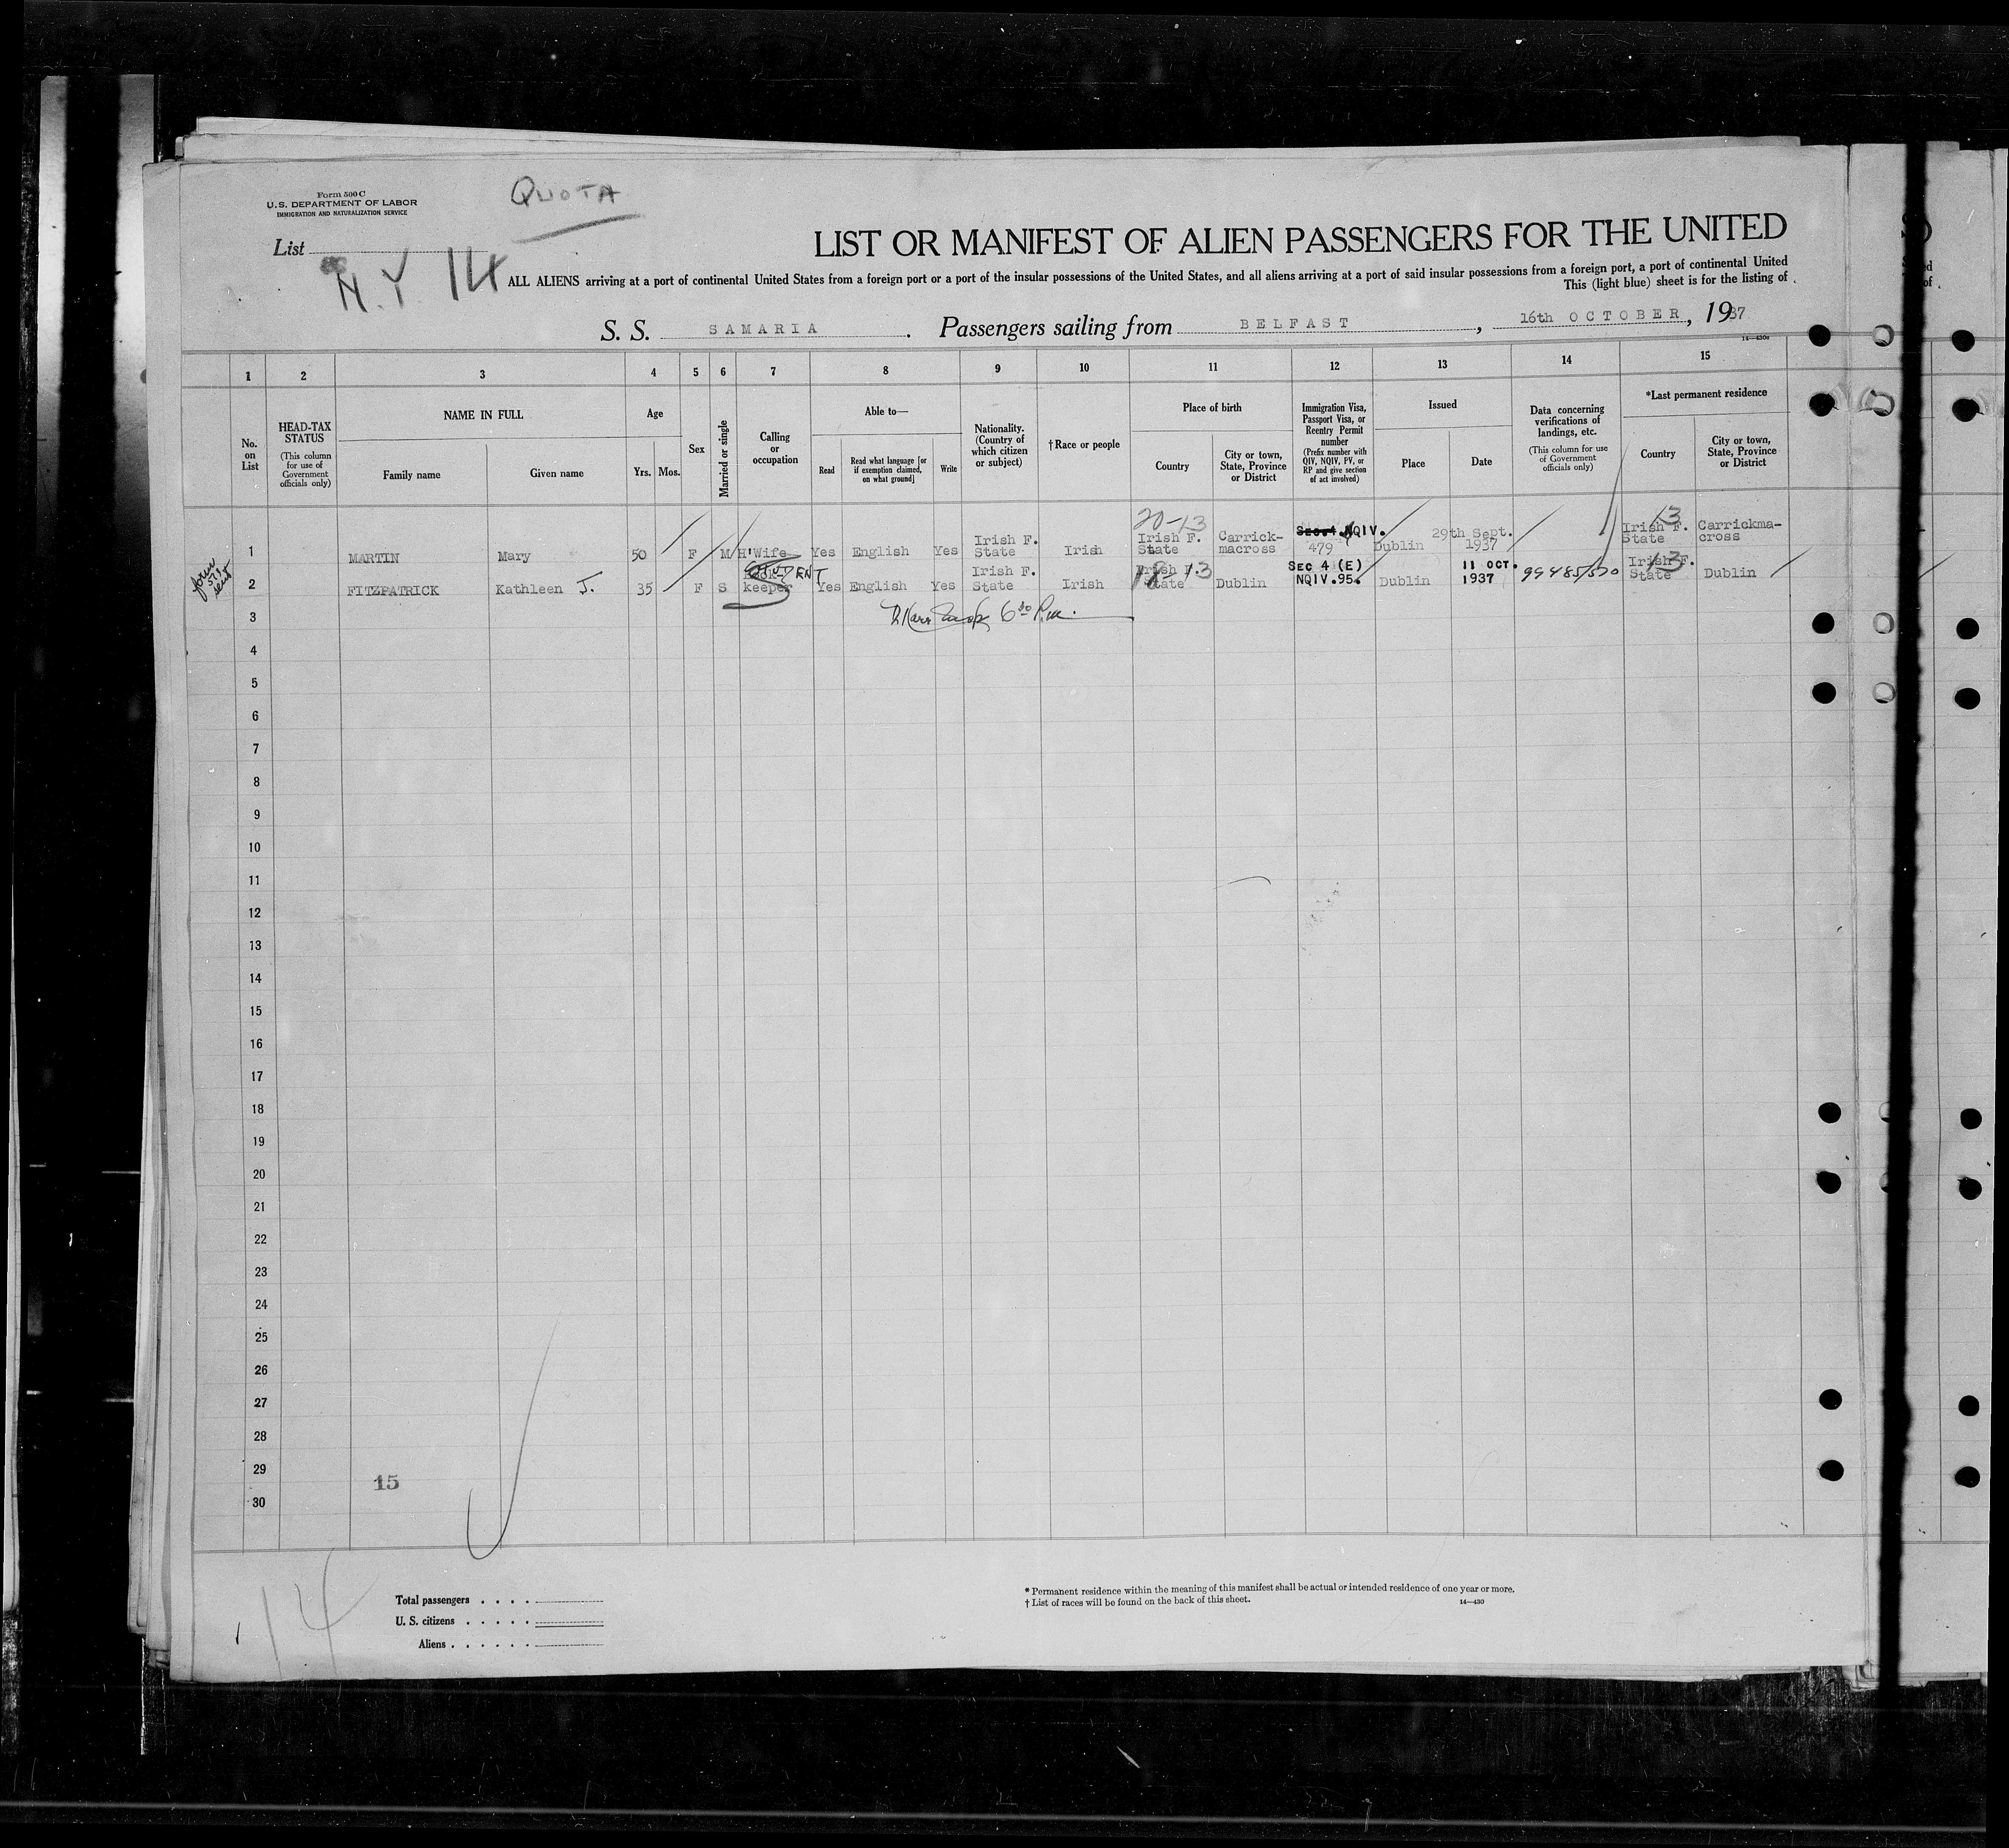 Form 500 C
U.S. DEPARTMENT OF LABOR
IMMIGRATION AND NATURALIZATION SERVICE
QUOTA
List
N.Y. 14
LIST OR MANIFEST OF ALIEN PASSENGERS FOR THE UNITED
ALL ALIENS arriving at a port of continental United States from a foreign port or a port of the insular possessions of the United States, and all aliens arriving at a port of said insular possessions from a foreign port, a port of continental United
This (light blue) sheet is for the listing of
S. S. SAMARIA. Passengers sailing from BELFAST, 16th OCTOBER, 1937
1 2 3 4 5 6 7 8 9 10 11 12 13 14 15
No. on List
HEAD-TAX STATUS
(This column for use of Government officials only)
NAME IN FULL
Family name
Given name
Age
Yrs. Mos.
Sex
Married or single
Calling or occupation
Able to—
Read
Read what language [or if exemption claimed, on what ground]
Write
Nationality. (Country of which citizen or subject)
†Race or people
Place of birth
Country
City or town, State, Province or District
Immigration Visa, Passport Visa, or Reentry Permit number
(Prefix number with QIV, NQIV, PV, or RP and give section of act involved)
Issued
Place
Date
Data concerning verifications of landings, etc.
(This column for use of Government officials only)
*Last permanent residence
Country
City or town, State, Province or District
20-13 13
1 MARTIN Mary 50 F M H'Wife Yes English Yes Irish F. State Irish Irish F. State Carrick-macross QIV. 479 Dublin 29th Sept. 1937 Irish F. State Carrickma-cross
2 FITZPATRICK Kathleen J. 35 F S Book-keeper STUDENT Yes English Yes Irish F. State Irish Irish F. State Dublin SEC 4 (E) NQIV.95. Dublin 11 OCT. 1937 Irish F. State 13 Dublin
3
4
5
6
7
8
9
10
11
12
13
14
15
16
17
18
19
20
21
22
23
24
25
26
27
28
29
15
30
14
Total passengers
U. S. citizens
Aliens
* Permanent residence within the meaning of this manifest shall be actual or intended residence of one year or more.
† List of races will be found on the back of this sheet.
14—430